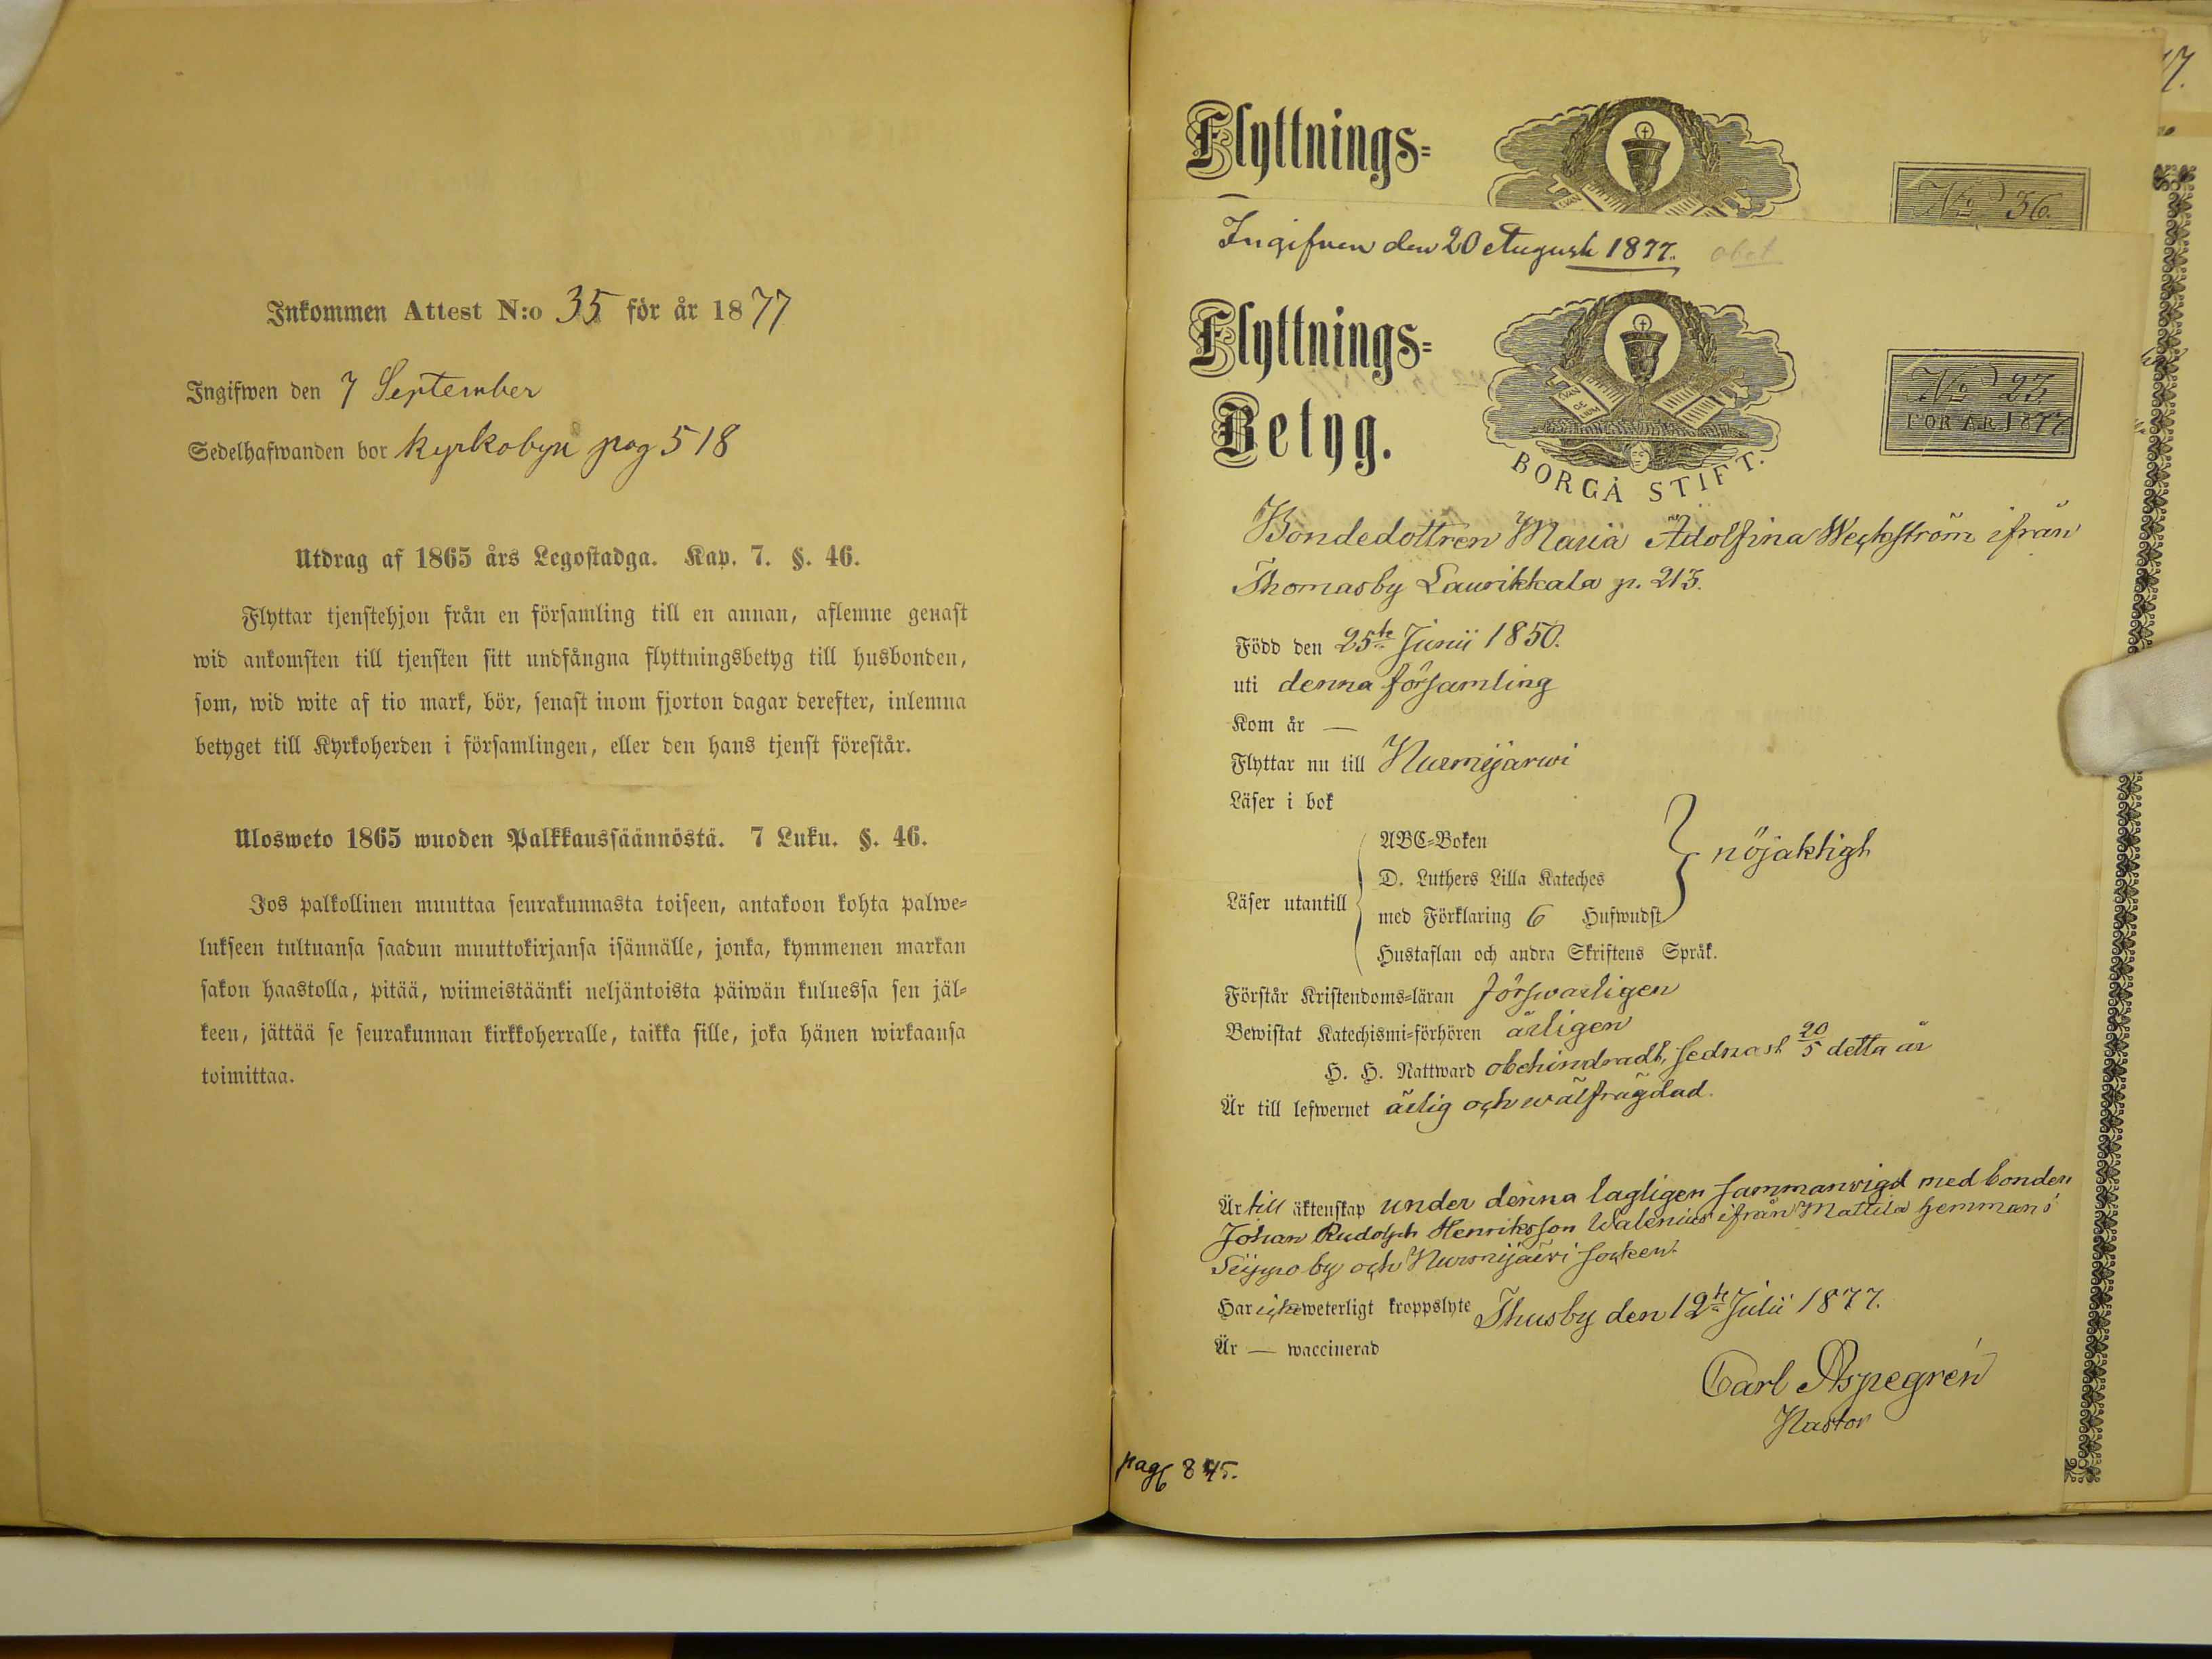 Inkommen Attest N:o 35 för år 1877
Ingifwen den 7 September
Sedelhafwanden bor Kyrkobyn pag 518
Utdrag af 1865 års Legostadga. Kap. 7. §. 46.
Flyttar tjenstehjon från en församling till en annan, aflemne genast
wid ankomsten till tjensten sitt undfångna flyttningsbetyg till husbonden,
som, wid wite af tio mark, bör, senast inom fjorton dagar derefter, inlemna
betyget till Kyrkoherden i församlingen, eller den hans tjenst förestår.
Ulosweto 1865 wuoden Palkkaussäännöstä. 7 Luku. §. 46.
Jos palkollinen muuttaa seurakunnasta toiseen, antakoon kohta palwe-
lukseen tultuansa saadun muuttokirjansa isännälle, jonka, kymmenen markan
sakon haastolla, pitää, wiimeistäänki neljäntoista päiwän kuluessa sen jäl-
keen, jättää se seurakunnan kirkkoherralle, taikka sille, joka hänen wirkaansa
toimittaa.
Flyttnings-
No 36.
Ingifven den 20 Augusti 1877. obet
Flyttnings-
Betyg.
EVAN
GE
LIUM
BORGÅ STIFT.
No 23
FÖR ÅR 1877
Bondedottren Maria Adolfina Weckström ifrån
Thomasby Laurikkala p. 213.
Född den 25te Junii 1850.
uti denna församling
Kom år —
Flyttar nu till Nurmijärwi
Läser i bok
Läser utantill
ABC-Boken
D. Luthers Lilla Kateches
med Förklaring 6 Hufwudst
Hustaflan och andra Skriftens Språk.
nöjaktigt
Förstår Kristendoms-läran förswarligen
Bewistat Katechismi-förhören ärligen
H. H. Nattward obehindradt, sednast 20/5 detta år
Är till lefwernet ärlig och wälfrägdad.
Är till äktenskap under denna lagligen sammanwigd med bonden
Johan Rudolph Henriksson Walenius ifrån Mattila hemman i
by och Nurmijärvi socken.
Har icke weterligt kroppslyte Thusby den 12te Julii 1877.
Är — waccinerad
Carl Aspegrén
Pastor
pag 845.